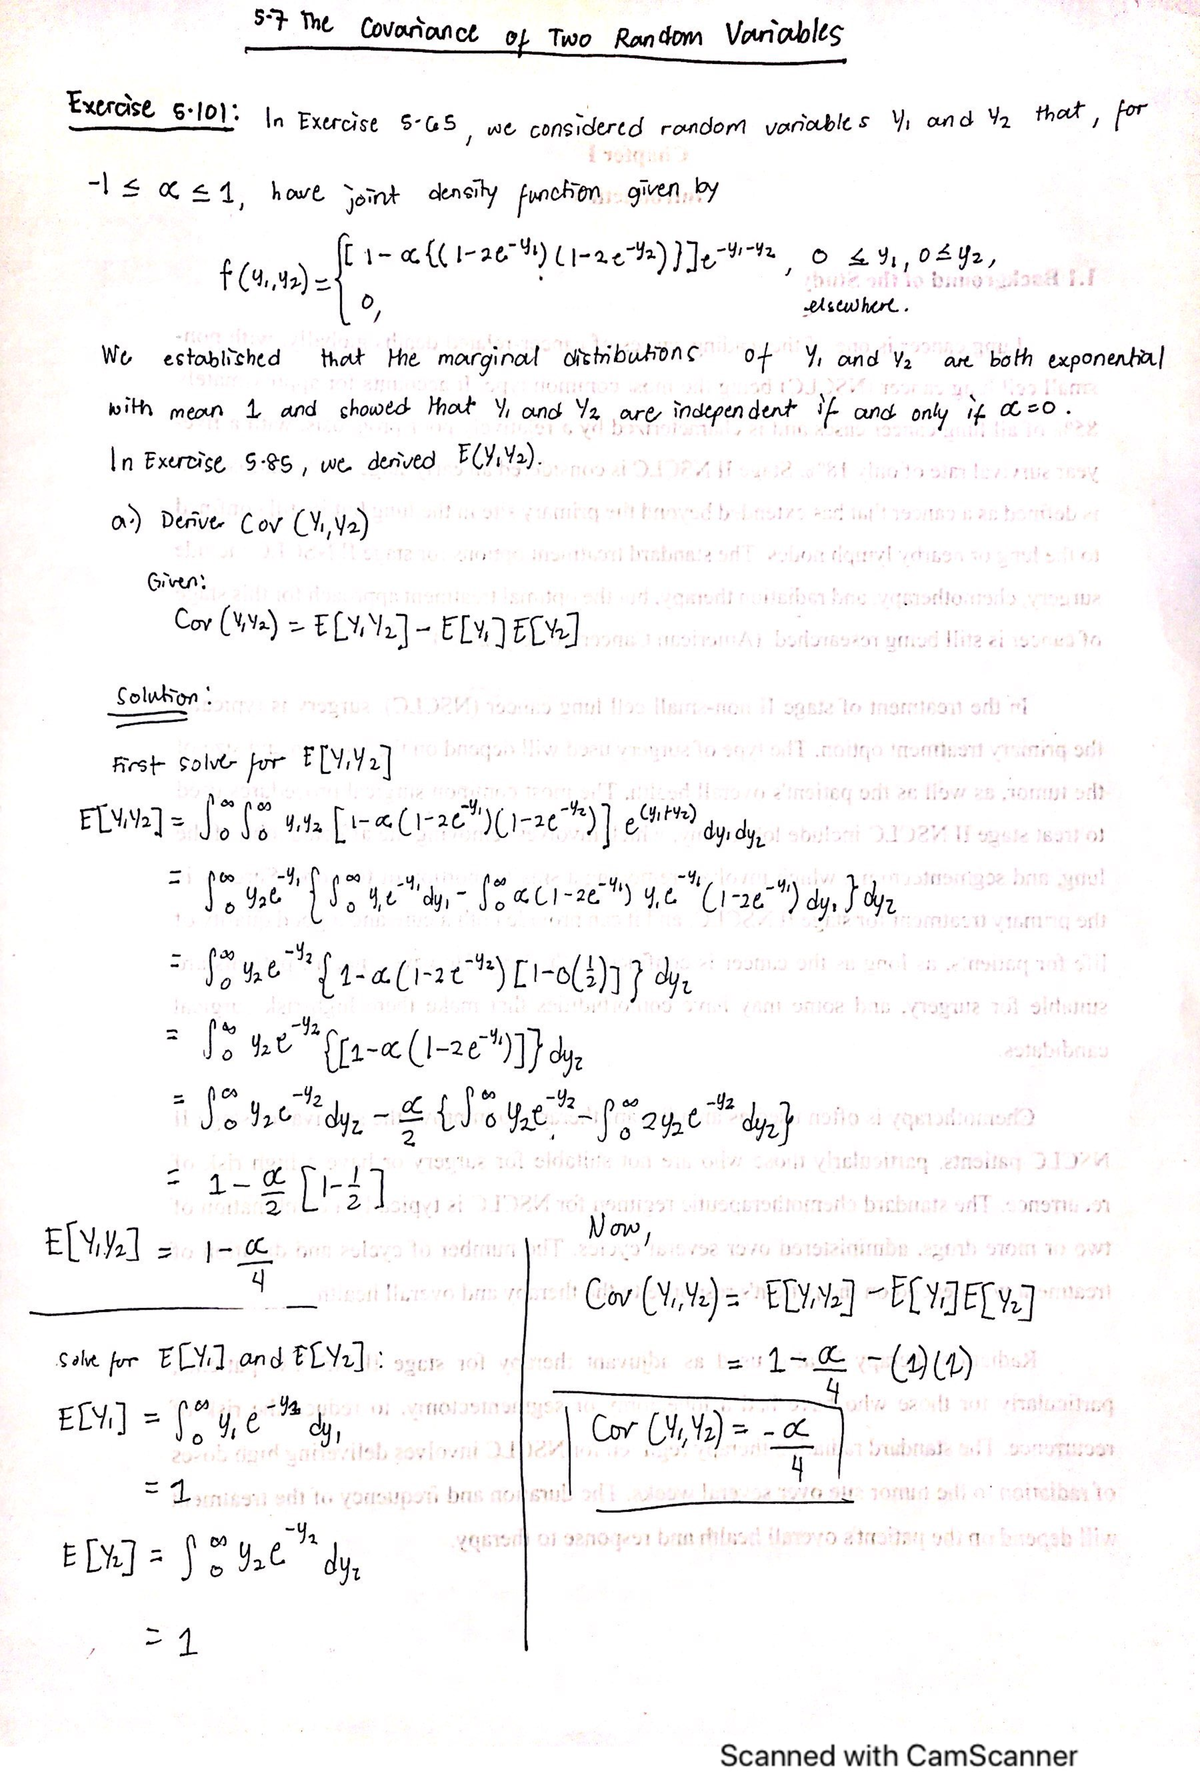 5-7 The Covariance of Two Random Variables
Exercise 5.101: In Exercise 5-65, we considered random variables Y₁ and Y₂ that, for
-1 ≤ α ≤ 1, have joint density function given by
f(y₁,y₂) = { [1-α{(1-2e^{-y₁})(1-2e^{-y₂})}]e^{-y₁-y₂}, 0 ≤ y₁, 0 ≤ y₂,
0, elsewhere.
We established that the marginal distributions of Y₁ and Y₂ are both exponential
with mean 1 and showed that Y₁ and Y₂ are independent if and only if α=0.
In Exercise 5.85, we derived E(Y₁Y₂).
a.) Derive Cov (Y₁,Y₂)
Given:
Cov (Y₁,Y₂) = E[Y₁Y₂] - E[Y₁]E[Y₂]
Solution:
First solve for E[Y₁Y₂]
E[Y₁Y₂] = ∫₀^∞ ∫₀^∞ y₁y₂ [1-α(1-2e^{-y₁})(1-2e^{-y₂})] e^{(y₁+y₂)} dy₁dy₂
= ∫₀^∞ y₂e^{-y₁} {∫₀^∞ y₁e^{-y₁}dy₁ - ∫₀^∞ α(1-2e^{-y₁}) y₁e^{-y₁}(1-2e^{-y₁}) dy₁} dy₂
= ∫₀^∞ y₂e^{-y₂} {1-α(1-2e^{-y₂})[1-0(½)]} dy₂
= ∫₀^∞ y₂e^{-y₂} {[1-α(1-2e^{-y₁})]} dy₂
= ∫₀^∞ y₂e^{-y₂} dy₂ - α/2 {∫₀^∞ y₂e^{-y₂} - ∫₀^∞ 2y₂e^{-y₂} dy₂}
= 1 - α/2 [1-½]
E[Y₁Y₂] = 1 - α/4
Solve for E[Y₁] and E[Y₂]:
E[Y₁] = ∫₀^∞ y₁e^{-y₁} dy₁
= 1
E[Y₂] = ∫₀^∞ y₂e^{-y₂} dy₂
= 1
Now,
Cov (Y₁,Y₂) = E[Y₁Y₂] - E[Y₁]E[Y₂]
= 1 - α/4 - (1)(1)
Cov (Y₁,Y₂) = -α/4
Scanned with CamScanner